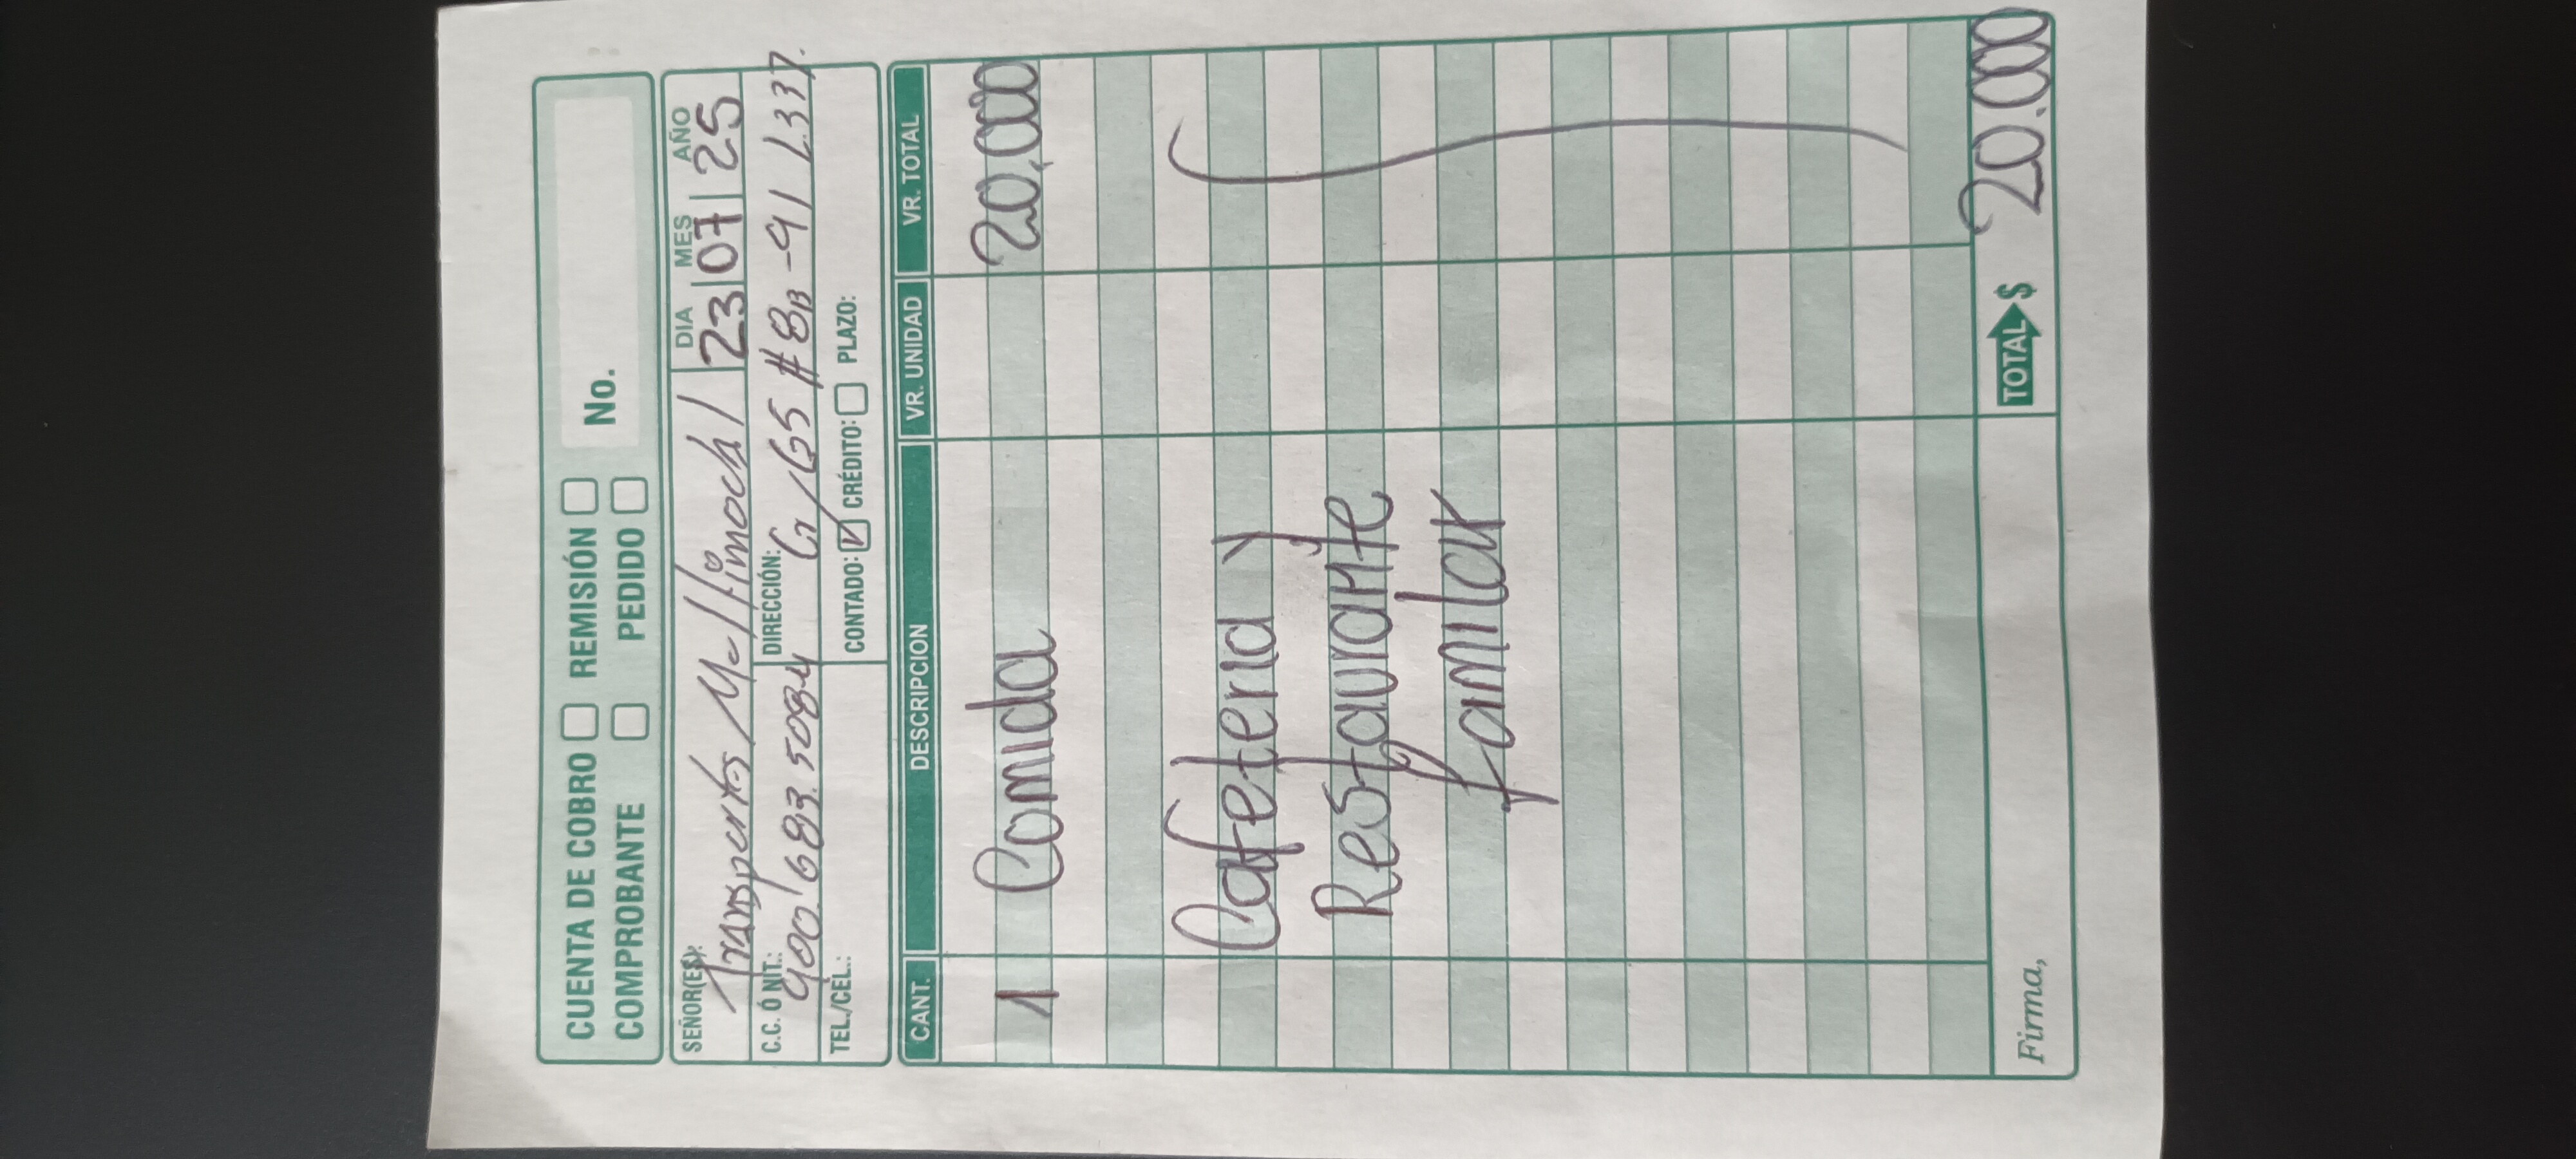 CUENTA DE COBRO REMISIÓN
COMPROBANTE PEDIDO No.
SEÑOR(ES): Transportes Multimodal DIA MES AÑO
23 07 25
C.C. Ó NIT.: 900.683.508-4 DIRECCIÓN: #8B-91 L.337.
TEL./CEL.: CONTADO: CRÉDITO: PLAZO:
CANT. DESCRIPCION VR. UNIDAD VR. TOTAL
1 Comida 20,000
Cafeteria y
Restaurante
familiar
Firma, TOTAL $ 20.000